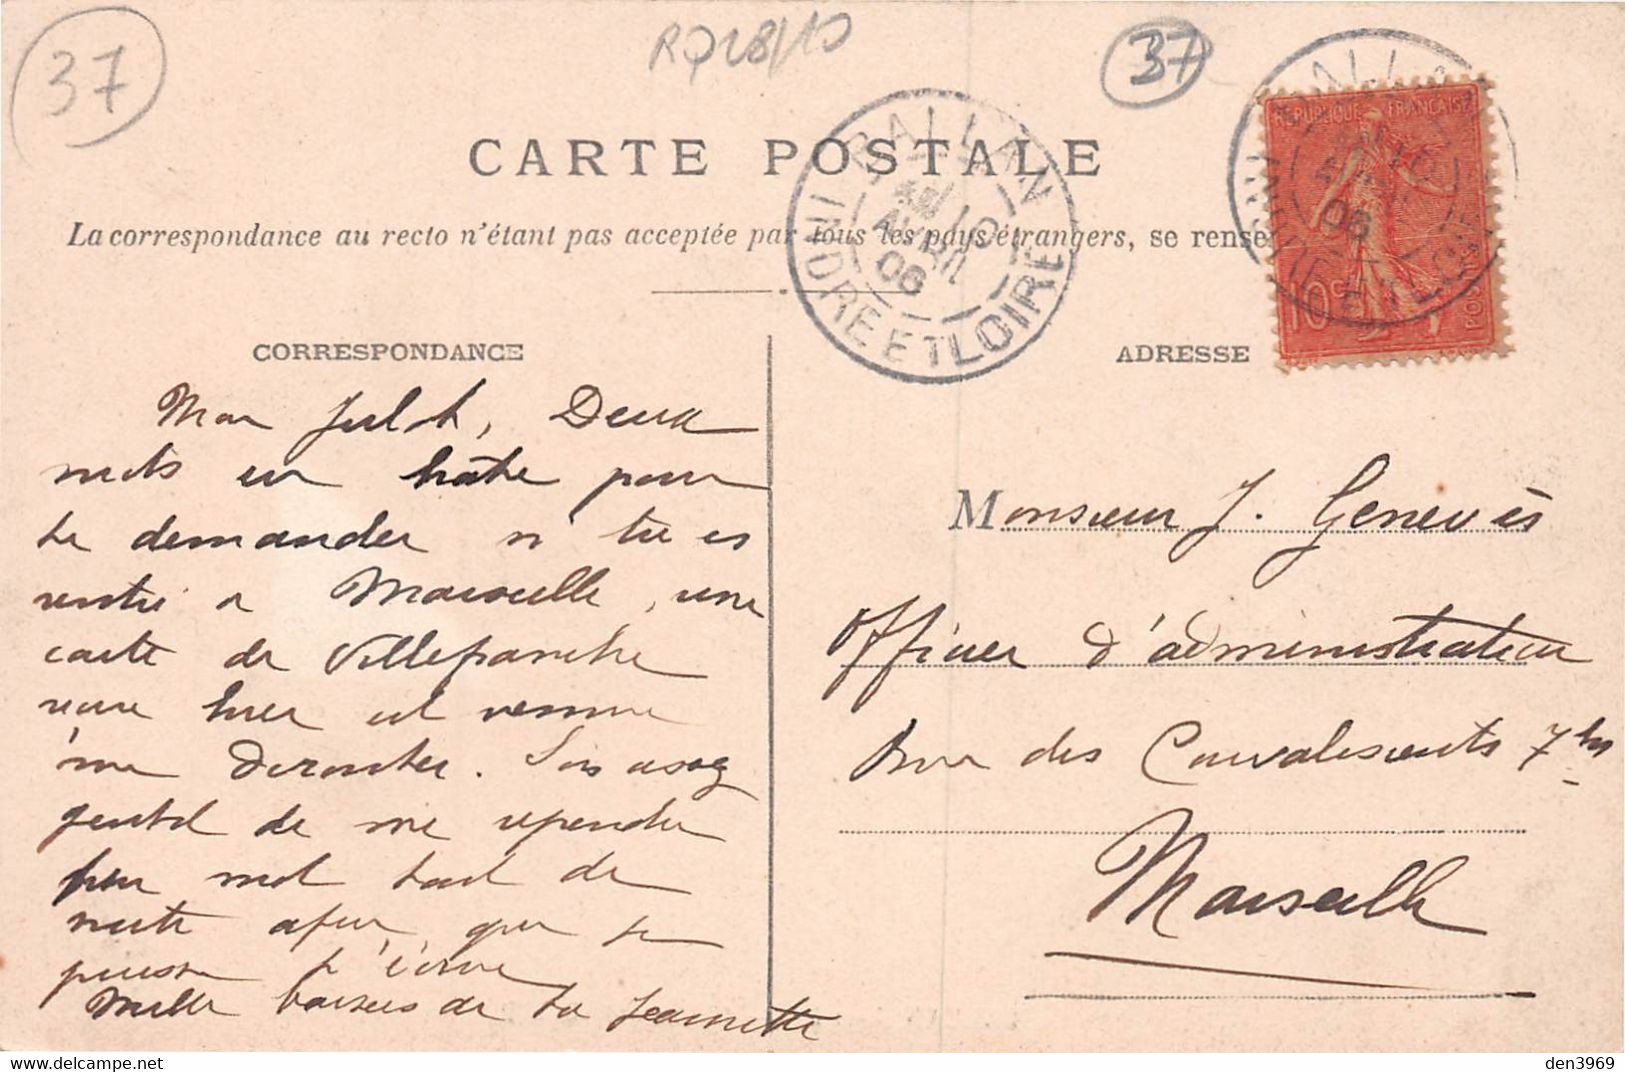 37
37
CARTE POSTALE
La correspondance au recto n'étant pas acceptée par tous les pays étrangers, se rense
BALLAN
10
AVRIL
06
INDRE ET LOIRE
REPUBLIQUE FRANÇAISE
10
06
CORRESPONDANCE
ADRESSE
Mon Julot, Deux
mots en hâte pour
te demander si tu es
rentré à Marseille, une
carte de Villefranche
reçue hier est venue
me dérouter. Sois assez
gentil de me répondre
un mot tout de
suite afin que je
puisse t'écrire
Mille baisers de ta Jeannette
Monsieur J. Genevès
Officier d'administration
Rue des Convalescents 7 bis
Marseille
den3969